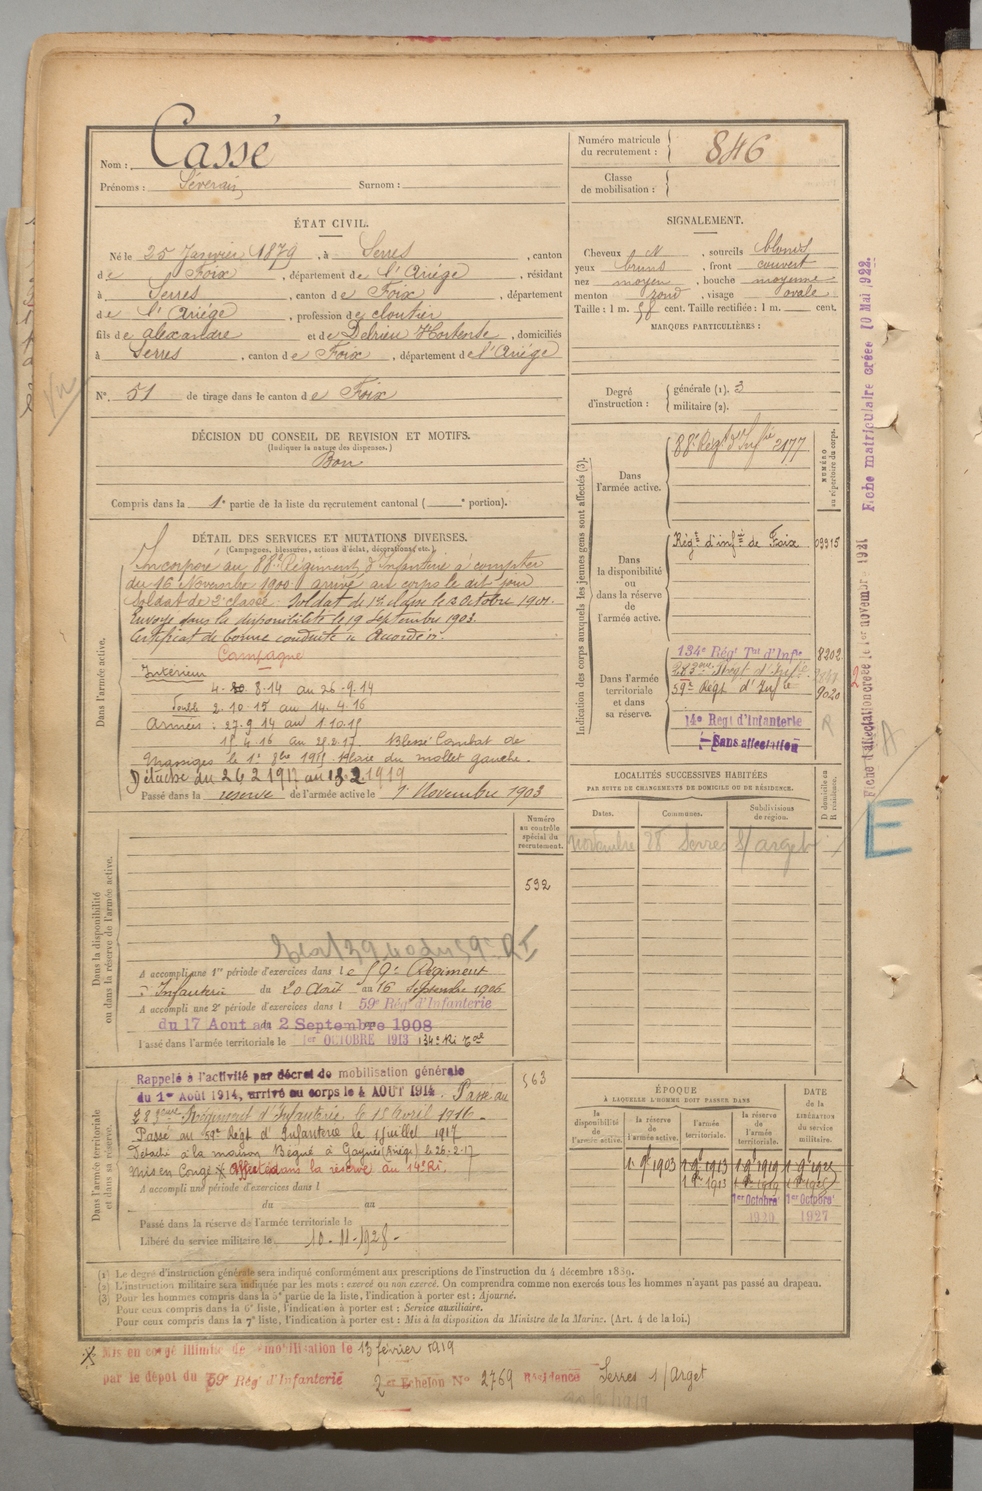 Nom : Cassé
Prénoms : Séverin Surnom :
Numéro matricule du recrutement : 846
Classe de mobilisation :
ÉTAT CIVIL.
Né le 25 Janvier 1879, à Serres, canton
de Foix, département de l'Ariége, résidant
à Serres, canton de Foix, département
de l'Ariége, profession de cloutier
fils de alexandre et de Delrieu Hortense, domiciliés
à Serres, canton de Foix, département de l'Ariége
N° 51 de tirage dans le canton de Foix
DÉCISION DU CONSEIL DE REVISION ET MOTIFS.
(Indiquer la nature des dispenses.)
Bon
Compris dans la 1e partie de la liste du recrutement cantonal ( e portion).
SIGNALEMENT.
Cheveux N, sourcils blonds
yeux bruns, front couvert
nez moyen, bouche moyenne
menton rond, visage ovale
Taille : 1 m. 58 cent. Taille rectifiée : 1 m. cent.
MARQUES PARTICULIÈRES :
Degré d'instruction : générale (1). 3
militaire (2).
DÉTAIL DES SERVICES ET MUTATIONS DIVERSES.
(Campagnes, blessures, actions d'éclat, décorations, etc.)
Dans l'armée active.
Incorporé au 88e Régiment d'Infanterie à compter
du 16 Novembre 1900 arrivé au corps le dit jour
Soldat de 2e classe. Soldat de 1re classe le 3 Octobre 1901.
Envoyé dans la disponibilité le 19 Septembre 1903.
Certificat de bonne conduite "Accordé".
Campagne
Intérieur
4. 8.14 au 26.9.14
Double 2.10.15 au 14.4.16
Armées : 27.9.14 au 1.10.15
15.4.16 au 25.2.17. Blessé Combat de
Massiges le 1er 8bre 1915. Plaie du mollet gauche.
Détaché du 26 2 1917 au 13.2.1919
Passé dans la réserve de l'armée active le 1er Novembre 1903
Indication des corps auxquels les jeunes gens sont affectés (3).
NUMÉRO au répertoire du corps.
Dans l'armée active. 88e Régt d'Inftie 2177
Dans la disponibilité ou dans la réserve de l'armée active. Régt d'infie de Foix 03915
Dans l'armée territoriale et dans sa réserve.
134e Régt Tal d'Infie 8202
283ème Régt d'Infie
59e Régt d'Infie 9020
14e Regt d'Infanterie R
Sans affectation
LOCALITÉS SUCCESSIVES HABITÉES
PAR SUITE DE CHANGEMENTS DE DOMICILE OU DE RÉSIDENCE.
Dates. Communes. Subdivisions de région. D domicile ou R résidence.
Novembre 28 Serres s/arget
Fiche matriculaire créée 10 Mai 1922.
Fiche d'affectation créée le 1er novembre 1921
E
Dans la disponibilité ou dans la réserve de l'armée active.
Numéro au contrôle spécial du recrutement.
592
A accompli une 1re période d'exercices dans le 59e Régiment
d'Infanterie du 20 Août au 16 Septembre 1906
A accompli une 2e période d'exercices dans l 59e Rég. d'Infanterie
du 17 Aout au 2 Septembre 1908
Passé dans l'armée territoriale le 1er OCTOBRE 1913 134e Ri Tal
Dans l'armée territoriale et dans sa réserve.
563
Rappelé à l'activité par décret de mobilisation générale
du 1er Août 1914, arrivé au corps le 4 AOUT 1914. Passé au
283ème Régiment d'Infanterie le 15 Avril 1916.
Passé au 59e Régt d'Infanterie le 1 Juillet 1917
Détaché à la maison Bégué à Ganac (Ariège) le 26-2-17
Mis en Congé * Affecté dans la réserve au 14e Ri.
A accompli une période d'exercices dans l
du au
Passé dans la réserve de l'armée territoriale le
Libéré du service militaire le 10-11-1928-
ÉPOQUE
À LAQUELLE L'HOMME DOIT PASSER DANS
la disponibilité de l'armée active. la réserve de l'armée active. l'armée territoriale. la réserve de l'armée territoriale. DATE de la LIBÉRATION du service militaire.
1. 9bre 1903 1. 9bre 1913 1. 9bre 1919 1. 9bre 1925
1. 8bre 1913 1. 8bre 1919 1. 8bre 1925
1er Octobre 1920 1er Octobre 1927
(1) Le degré d'instruction générale sera indiqué conformément aux prescriptions de l'instruction du 4 décembre 1889.
(2) L'instruction militaire sera indiquée par les mots : exercé ou non exercé. On comprendra comme non exercés tous les hommes n'ayant pas passé au drapeau.
(3) Pour les hommes compris dans la 5e partie de la liste, l'indication à porter est : Ajourné.
Pour ceux compris dans la 6e liste, l'indication à porter est : Service auxiliaire.
Pour ceux compris dans la 7e liste, l'indication à porter est : Mis à la disposition du Ministre de la Marine. (Art. 4 de la loi.)
* Mis en congé illimité de démobilisation le 13 février 1919
par le dépôt du 59e Rég. d'Infanterie 2e Echelon N° 2769 Résidence Serres s/Arget